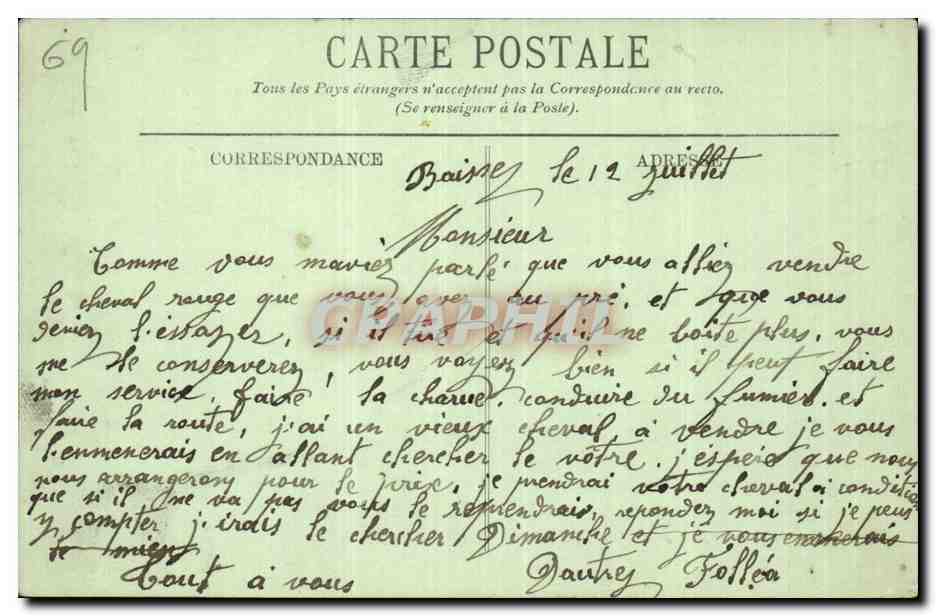 69
CARTE POSTALE
Tous les Pays étrangers n'acceptent pas la Correspondance au recto.
(Se renseigner à la Poste).
CORRESPONDANCE
ADRESSE
le 12 Juillet
Monsieur
Comme vous maviez parlé que vous alliez vendre
le cheval rouge que vous avez au pré, et que vous
deviez l'essayer, si il tire et qu'il ne boite plus, vous
me le conserverez, vous voyez bien si il peut faire
mon service, faire la charue, conduire du fumier, et
faire la route, j'ai un vieux cheval à vendre je vous
l'enmenerais en allant chercher le vôtre, j'espère que nous
nous arrangerons pour le prix, je prendrai votre cheval à condition
que si il ne va pas vous le reprendrais, repondez moi si je peux
y compter j'irais le chercher Dimanche et je vous enmenerais
le mien
Tout à vous
Folléa
CPAPHIL